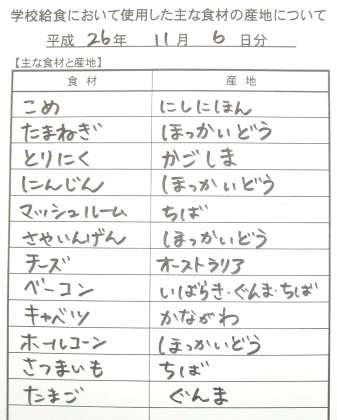 学校給食において使用した主な食材の産地について
平成 26年 11月 6日分
【主な食材と産地】
食材 産地
こめ にしにほん
たまねぎ ほっかいどう
とりにく かごしま
にんじん ほっかいどう
マッシュルーム ちば
さやいんげん ほっかいどう
チーズ オーストラリア
ベーコン いばらき・ぐんま・ちば
キャベツ かながわ
ホールコーン ほっかいどう
さつまいも ちば
たまご ぐんま